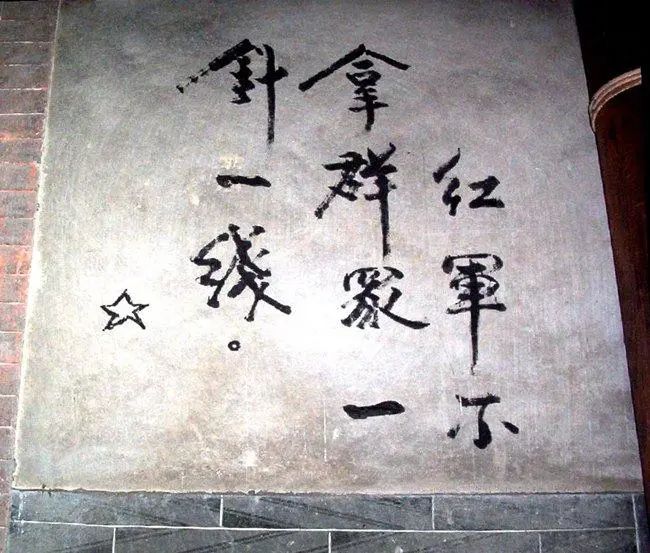 红軍不
拿群眾一
針一线。